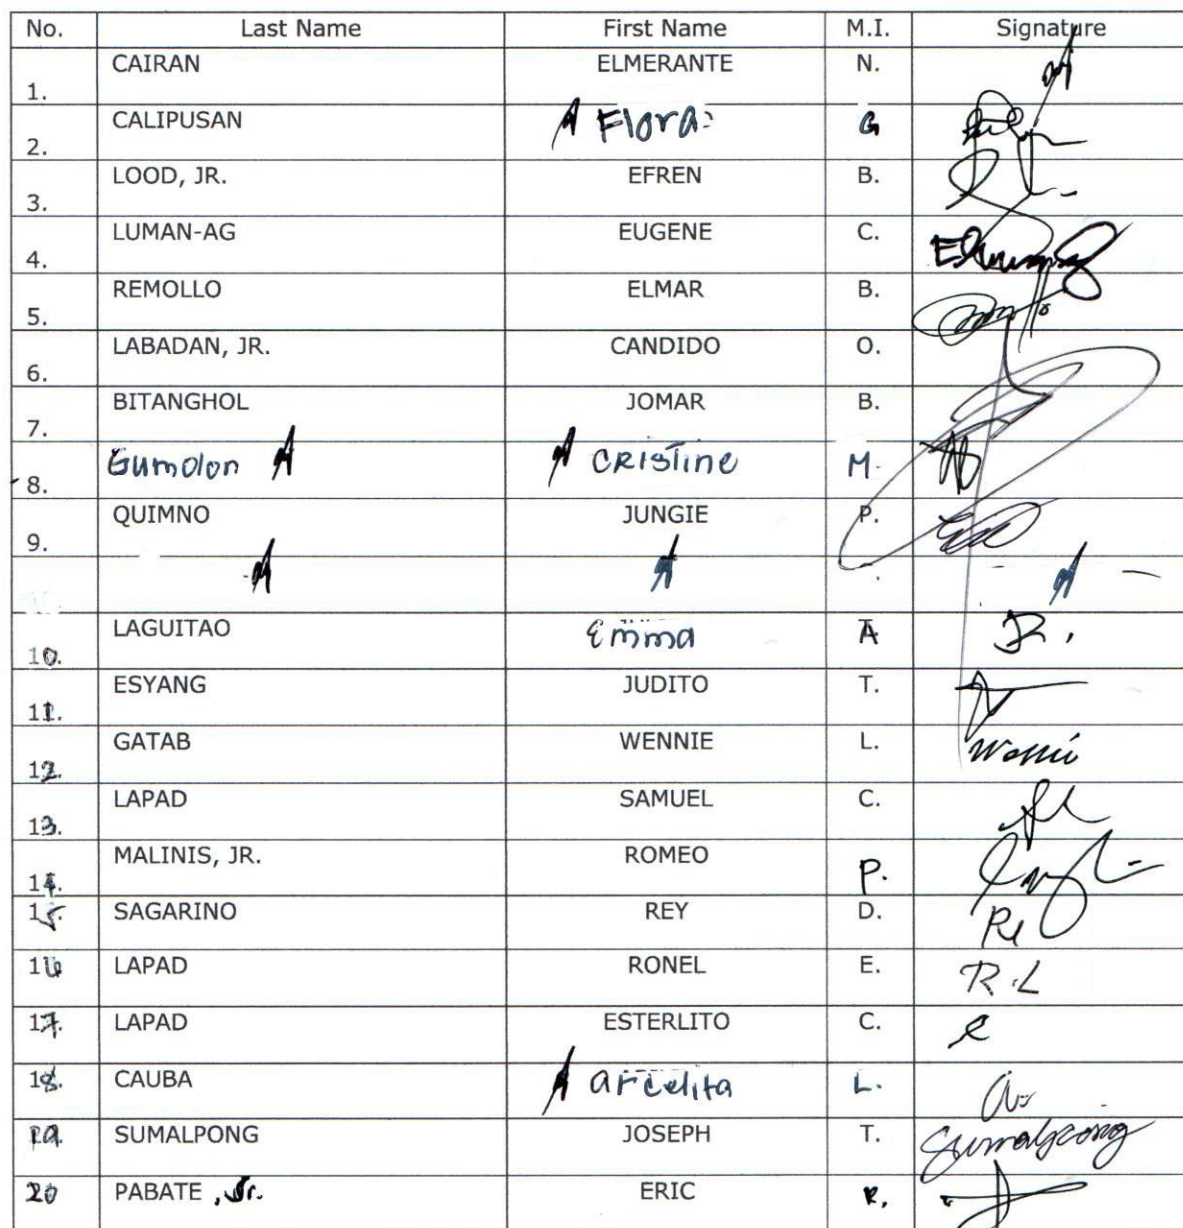 No. Last Name First Name M.I. Signature
1. CAIRAN ELMERANTE N.
2. CALIPUSAN Flora G
3. LOOD, JR. EFREN B.
4. LUMAN-AG EUGENE C.
5. REMOLLO ELMAR B.
6. LABADAN, JR. CANDIDO O.
7. BITANGHOL JOMAR B.
8. Gumolon CRISTINE M.
9. QUIMNO JUNGIE P.
10. LAGUITAO Emma A
11. ESYANG JUDITO T.
12. GATAB WENNIE L.
13. LAPAD SAMUEL C.
14. MALINIS, JR. ROMEO P.
15. SAGARINO REY D.
16 LAPAD RONEL E. R.L
17. LAPAD ESTERLITO C.
18. CAUBA arcelita L.
19. SUMALPONG JOSEPH T. Sumalpong
20 PABATE, Jr. ERIC R.